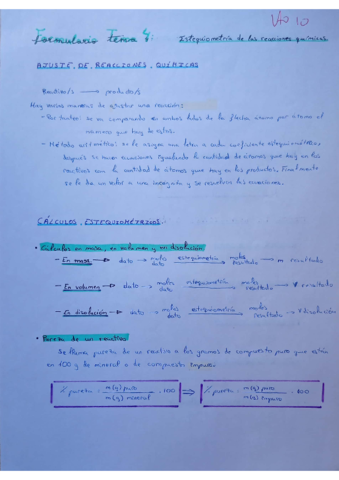 Formulario Tema 4: Estequiometría de las reacciones químicas
AJUSTE DE REACCIONES QUÍMICAS
Reactivo/s → producto/s
Hay varias maneras de ajustar una reacción:
- Por tanteo: se va comparando en ambos lados de la flecha átomo por átomo el
número que hay de estos.
- Método aritmético: se le asigna una letra a cada coeficiente estequiométrico,
después se hacen ecuaciones igualando la cantidad de átomos que hay en los
reactivos con la cantidad de átomos que hay en los productos. Finalmente
se le da un valor a una incógnita y se resuelven las ecuaciones.
CÁLCULOS ESTEQUIOMÉTRICOS
• Cálculos en masa, en volumen y en disolución
- En masa → dato → moles dato estequiometría → moles resultado → m resultado
- En volumen → dato → moles dato estequiometría → moles resultado → V resultado
- En disolución → dato → moles dato estequiometría → moles resultado → V disolución
• Pureza de un reactivo
Se llama pureza de un reactivo a los gramos de compuesto puro que están
en 100 g de mineral o de compuesto impuro:
% pureza = m(g) puro / m(g) mineral · 100 ⇒ % pureza = m(g) puro / m(g) impuro · 100